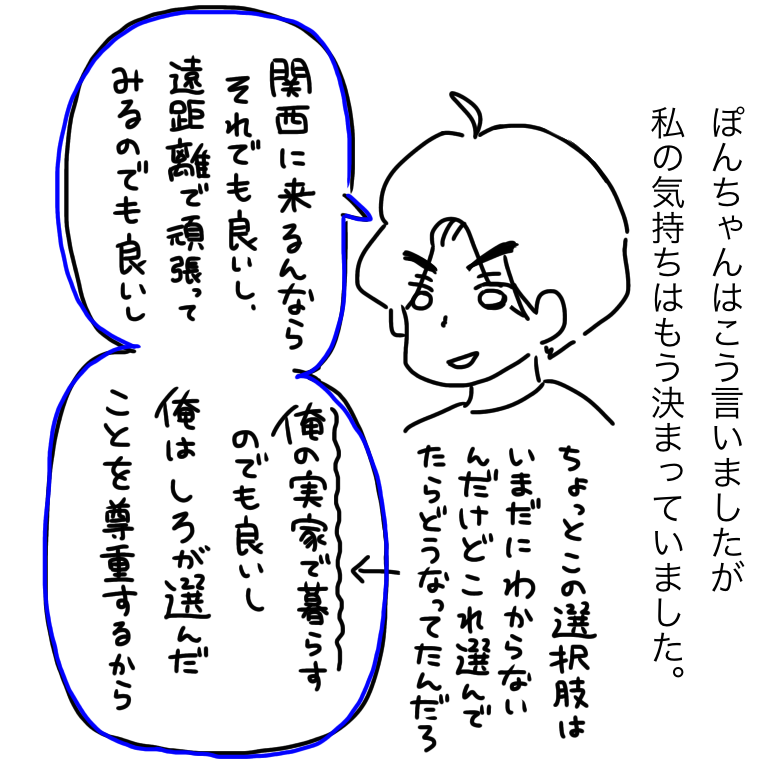 ぽんちゃんはこう言いましたが
私の気持ちはもう決まっていました。
関西に来るんなら
それでも良いし、
遠距離で頑張って
みるのでも良いし
俺の実家で暮らす
のでも良いし
俺はしろが選んだ
ことを尊重するから
ちょっとこの選択肢は
いまだにわからない
んだけどこれ選んで
たらどうなってたんだろ